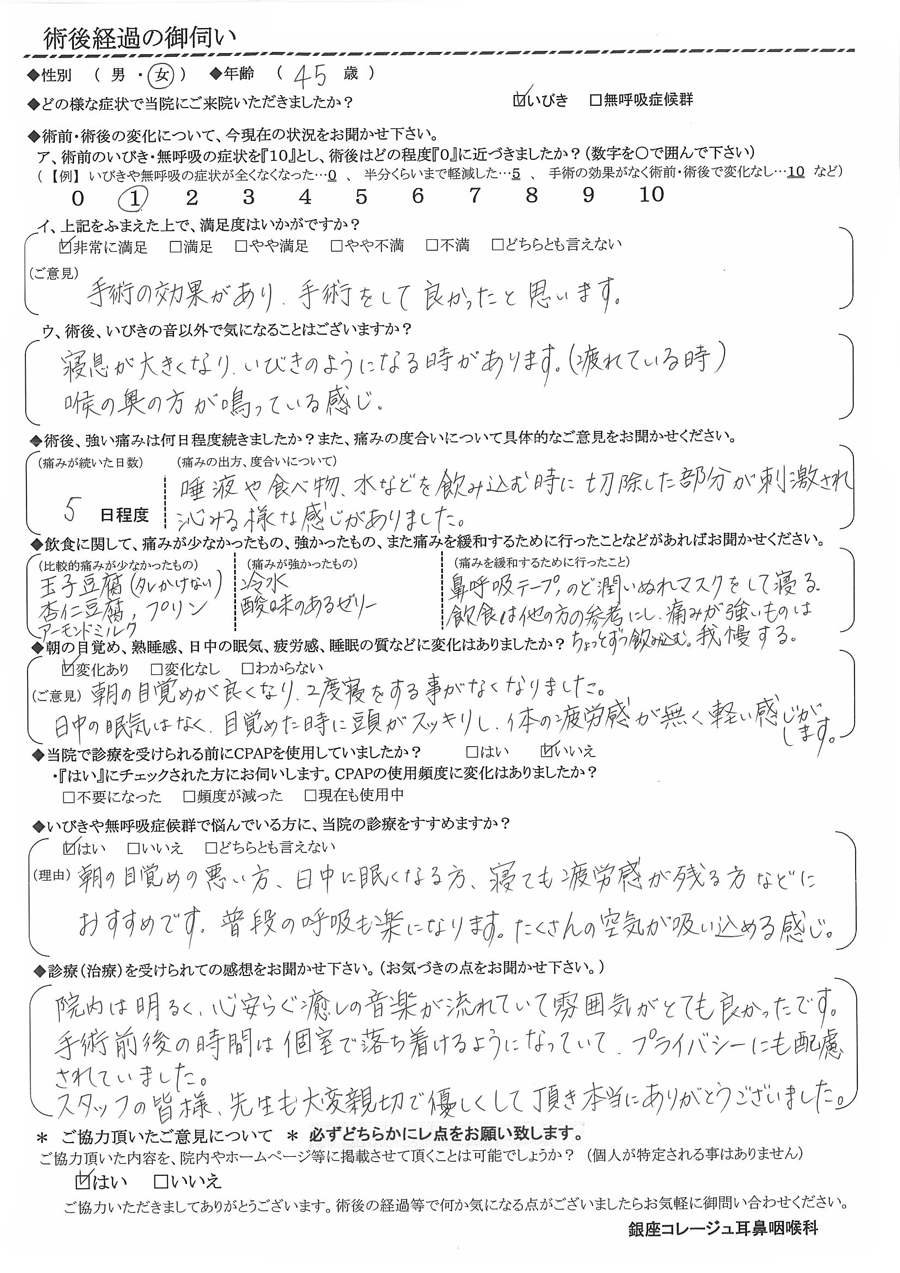 術後経過の御伺い
◆性別 （ 男 ・ 女 ） ◆年齢 （ 45 歳 ）
◆どの様な症状で当院にご来院いただきましたか？ ☑いびき □無呼吸症候群
◆術前・術後の変化について、今現在の状況をお聞かせ下さい。
ア、術前のいびき・無呼吸の症状を『10』とし、術後はどの程度『0』に近づきましたか？（数字を○で囲んで下さい）
（【例】 いびきや無呼吸の症状が全くなくなった…0 、 半分くらいまで軽減した…5 、 手術の効果がなく術前・術後で変化なし…10 など）
0 1 2 3 4 5 6 7 8 9 10
イ、上記をふまえた上で、満足度はいかがですか？
☑非常に満足 □満足 □やや満足 □やや不満 □不満 □どちらとも言えない
（ご意見）
手術の効果があり、手術をして良かったと思います。
ウ、術後、いびきの音以外で気になることはございますか？
寝息が大きくなり、いびきのようになる時があります。（疲れている時）
喉の奥の方が鳴っている感じ。
◆術後、強い痛みは何日程度続きましたか？また、痛みの度合いについて具体的なご意見をお聞かせください。
（痛みが続いた日数） （痛みの出方、度合いについて）
唾液や食べ物、水などを飲み込む時に切除した部分が刺激され
5 日程度 沁みる様な感じがありました。
◆飲食に関して、痛みが少なかったもの、強かったもの、また痛みを緩和するために行ったことなどがあればお聞かせください。
（比較的痛みが少なかったもの） （痛みが強かったもの） （痛みを緩和するために行ったこと）
玉子豆腐（タレかけない） 冷水 鼻呼吸テープ、のど潤いぬれマスクをして寝る。
杏仁豆腐、プリン 酸味のあるゼリー 飲食は他の方の参考にし、痛みが強いものは
アーモンドミルク ちょっとずつ飲み込む。我慢する。
◆朝の目覚め、熟睡感、日中の眠気、疲労感、睡眠の質などに変化はありましたか？
☑変化あり □変化なし □わからない
（ご意見） 朝の目覚めが良くなり、2度寝をする事がなくなりました。
日中の眠気はなく、目覚めた時に頭がスッキリし、体の疲労感が無く軽い感じが
します。
◆当院で診療を受けられる前にCPAPを使用していましたか？ □はい ☑いいえ
・『はい』にチェックされた方にお伺いします。CPAPの使用頻度に変化はありましたか？
□不要になった □頻度が減った □現在も使用中
◆いびきや無呼吸症候群で悩んでいる方に、当院の診療をすすめますか？
☑はい □いいえ □どちらとも言えない
（理由） 朝の目覚めの悪い方、日中に眠くなる方、寝ても疲労感が残る方などに
おすすめです。普段の呼吸も楽になります。たくさんの空気が吸い込める感じ。
◆診療（治療）を受けられての感想をお聞かせ下さい。（お気づきの点をお聞かせ下さい。）
院内は明るく、心安らぐ癒しの音楽が流れていて雰囲気がとても良かったです。
手術前後の時間は個室で落ち着けるようになっていて、プライバシーにも配慮
されていました。
スタッフの皆様、先生も大変親切で優しくして頂き本当にありがとうございました。
＊ ご協力頂いたご意見について ＊ 必ずどちらかにレ点をお願い致します。
ご協力頂いた内容を、院内やホームページ等に掲載させて頂くことは可能でしょうか？ （個人が特定される事はありません）
☑はい □いいえ
ご協力いただきましてありがとうございます。術後の経過等で何か気になる点がございましたらお気軽に御問い合わせください。
銀座コレージュ耳鼻咽喉科